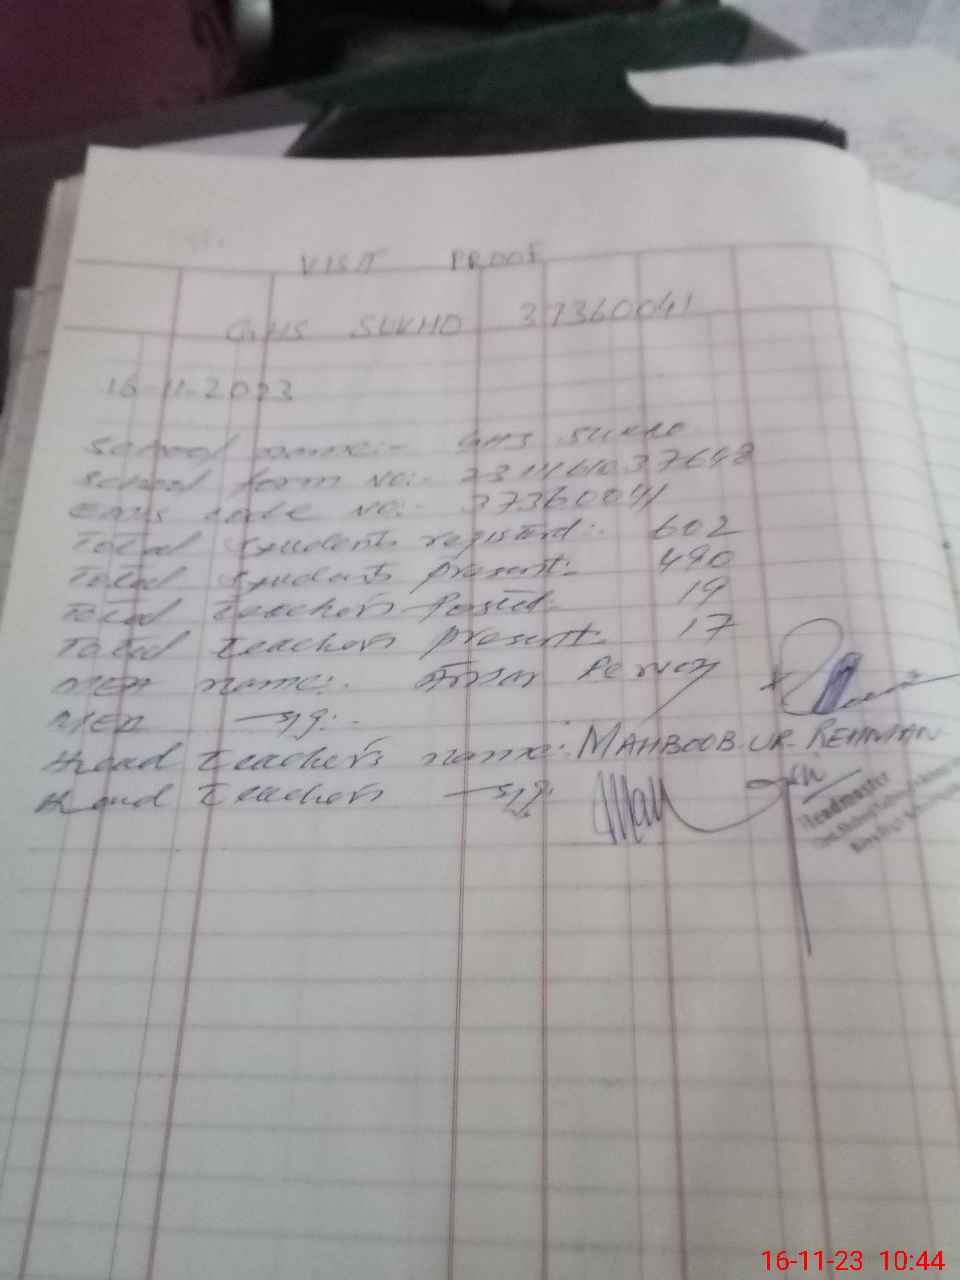 VISIT PROOF
GHS SUKHO 37360041
16-11-2023
School name:- GHS SUKHO
School form No:- 2311161037648
EMIS code No:- 37360041
Total students registed:- 602
Total students present:- 490
Total teachers posted:- 19
Total teachers present:- 17
MEA name:- Pervez
MEA sig:-
Head teacher's name:- MAHBOOB UR REHMAN
Head teacher sig:-
Headmaster
16-11-23 10:44